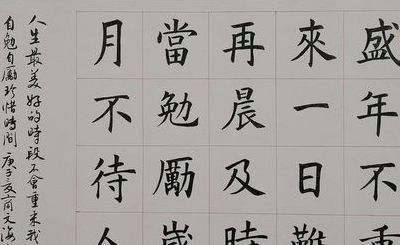 盛年不重
來一日難
再晨及時
當勉勵歲
月不待人
人生最美好的時段不會重来我
自勉自勵珍惜時間庚子